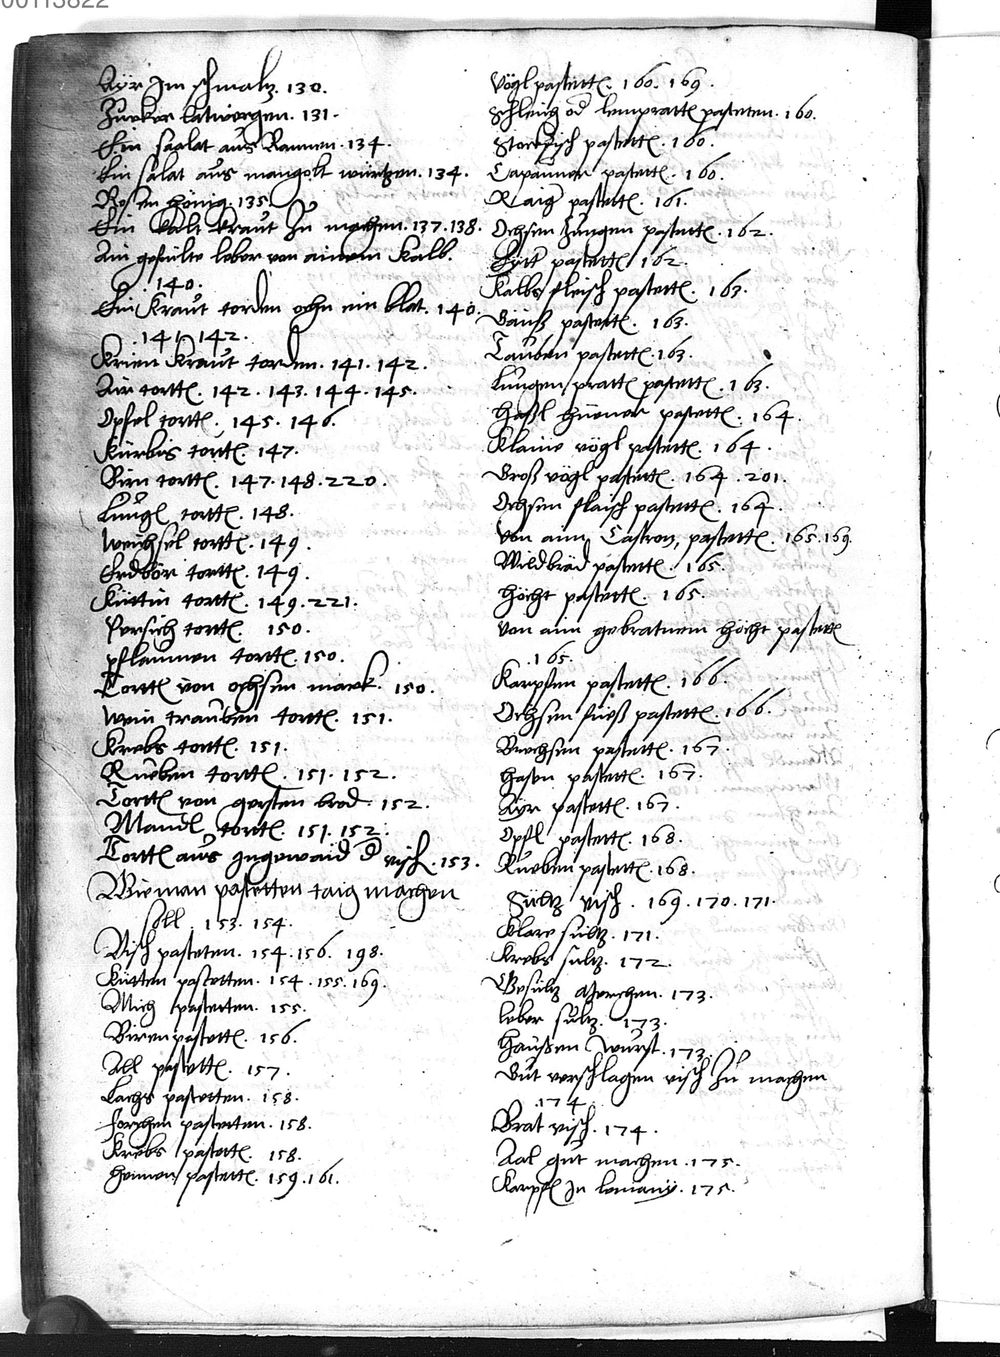 00113822
Ayr Im schmaltz. 130.
Zucker latwergen. 131.
Ein saalat aus Rannen. 134.
Ein salat aus mangolt würtzen. 134.
Rosen hönig. 135.
Ein Kalt kraut Zu machen. 137. 138.
Ain gefulte leber von ainem Kalb.
. 140.
Ein Kraut torden ohn ein blat. 140.
. 141. 142.
Krien Kraut torden. 141. 142.
Air tortt. 142. 143. 144. 145.
Opfel tortt. 145. 146.
Kürbis tortt. 147.
Birn tortt. 147. 148. 220.
Lungl tortt. 148.
Weichsel tortt. 149.
Erdbör tortt. 149.
Küttin tortt. 149. 221.
Persich tortt. 150.
pflaumen tortt. 150.
Tortt von ochsen marck. 150.
Wein trauben tortt. 151.
Krebs tortt. 151.
Rueben tortt. 151. 152.
Tortt von gersten brod. 152.
Mandl tortt. 151. 152.
Tortt aus Ingewaid d visch. 153.
Wie man pastetten taig machen
soll. 153. 154.
Visch pasteten. 154. 156. 198.
Kütten pastetten. 154. 155. 169.
Milch pastetten. 155.
Biren pastett. 156.
All pastett. 157.
Lachs pastetten. 158.
forchen pastetten. 158.
Krebs pastett. 158.
Hennen pastett. 159. 161.
Vögl pastett. 160. 169.
Schleng od lempratt pasteten. 160.
Storvisch pastett. 160.
Capauner pastett. 160.
Raig pastett. 161.
Ochsen Zungen pastett. 162.
pastett. 162.
Kalbs fleisch pastett. 163.
Gänß pastett. 163.
Tauben pastett. 163.
Lungen pratt pastett. 163.
Haßl Hüener pastett. 164.
Klaine vögl pastett. 164.
Groß vögl pastett. 164. 201.
Ochsen flaisch pastett. 164.
Von aim Castron, pastett. 165. 169.
Wildbräd pastett. 165.
Höcht pastett. 165.
Von aim gebratnem höcht pastett
. 165.
Karpffen pastett. 166.
Ochsen füeß pastett. 166.
Brechsen pastett. 167.
Hasen pastett. 167.
Ayr pastett. 167.
Opfl pastett. 168.
Rueben pastett. 168.
Sultz visch. 169. 170. 171.
Klare sultz. 171.
Krebs sultz. 172.
Gesultz 173.
leber sultz. 173.
Haußen Wurst. 173.
Gut verschlagen visch Zu machen
. 174.
Brat visch. 174.
Aal gut machen. 175.
Karpf In lemany. 175.